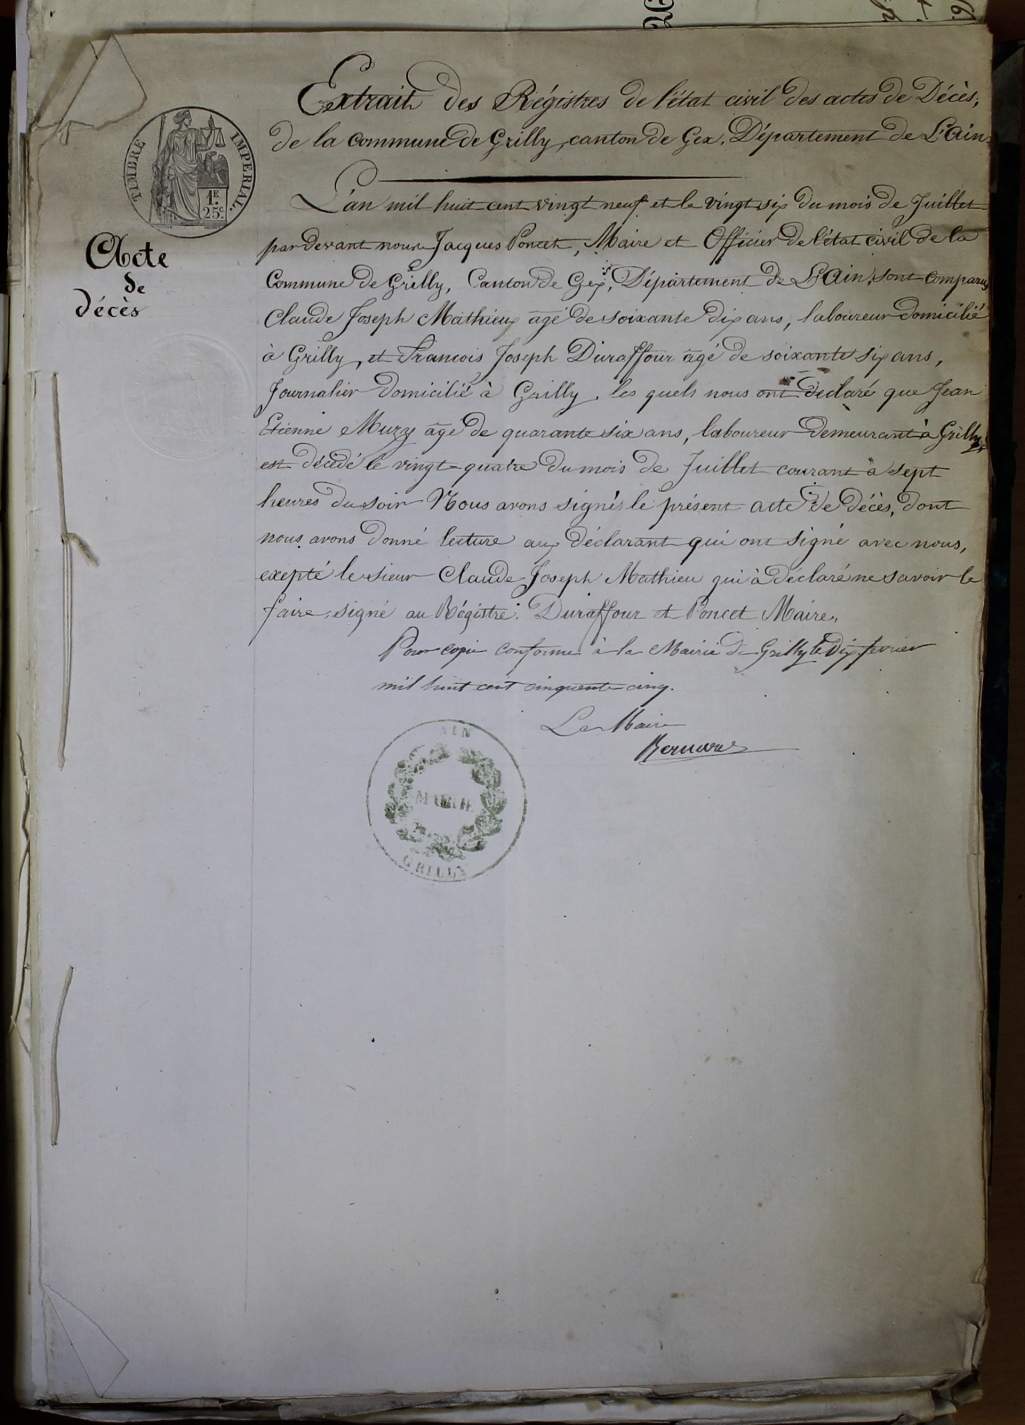 Extrait des Régistres de l'état civil des actes de Décès,
de la commune de Grilly, canton de Gex, Département de L'Ain.
TIMBRE IMPERIAL.
1F.
25c
Acte
de
décès
L'an mil huit cent vingt neuf et le vingt six du mois de Juillet
par devant nous Jacques Poncet, Maire et Officier de l'état civil de la
Commune de Grilly, Canton de Gex, Département de L'Ain, sont comparus
Claude Joseph Mathieu agé de soixante dix ans, laboureur domicilié
à Grilly, et Francois Joseph Duraffour agé de soixante six ans,
Journalier domicilié à Grilly, les quels nous ont déclaré que Jean
Etienne Muzy agé de quarante six ans, laboureur demeurant à Grilly
est décédé le vingt-quatre du mois de Juillet courant à sept
heures du soir Nous avons signés le présent acte de décès, dont
nous avons donné lecture aux déclarant qui ont signé avec nous,
exepté le sieur Claude Joseph Mathieu qui à déclaré ne savoir le
faire, signé au Régistre: Duraffour et Poncet Maire,
Pour copie conforme à la Mairie de Grilly le Dix fevrier
mil huit cent cinquente cinq.
Le Maire
AIN
MAIRIE
GRILLY